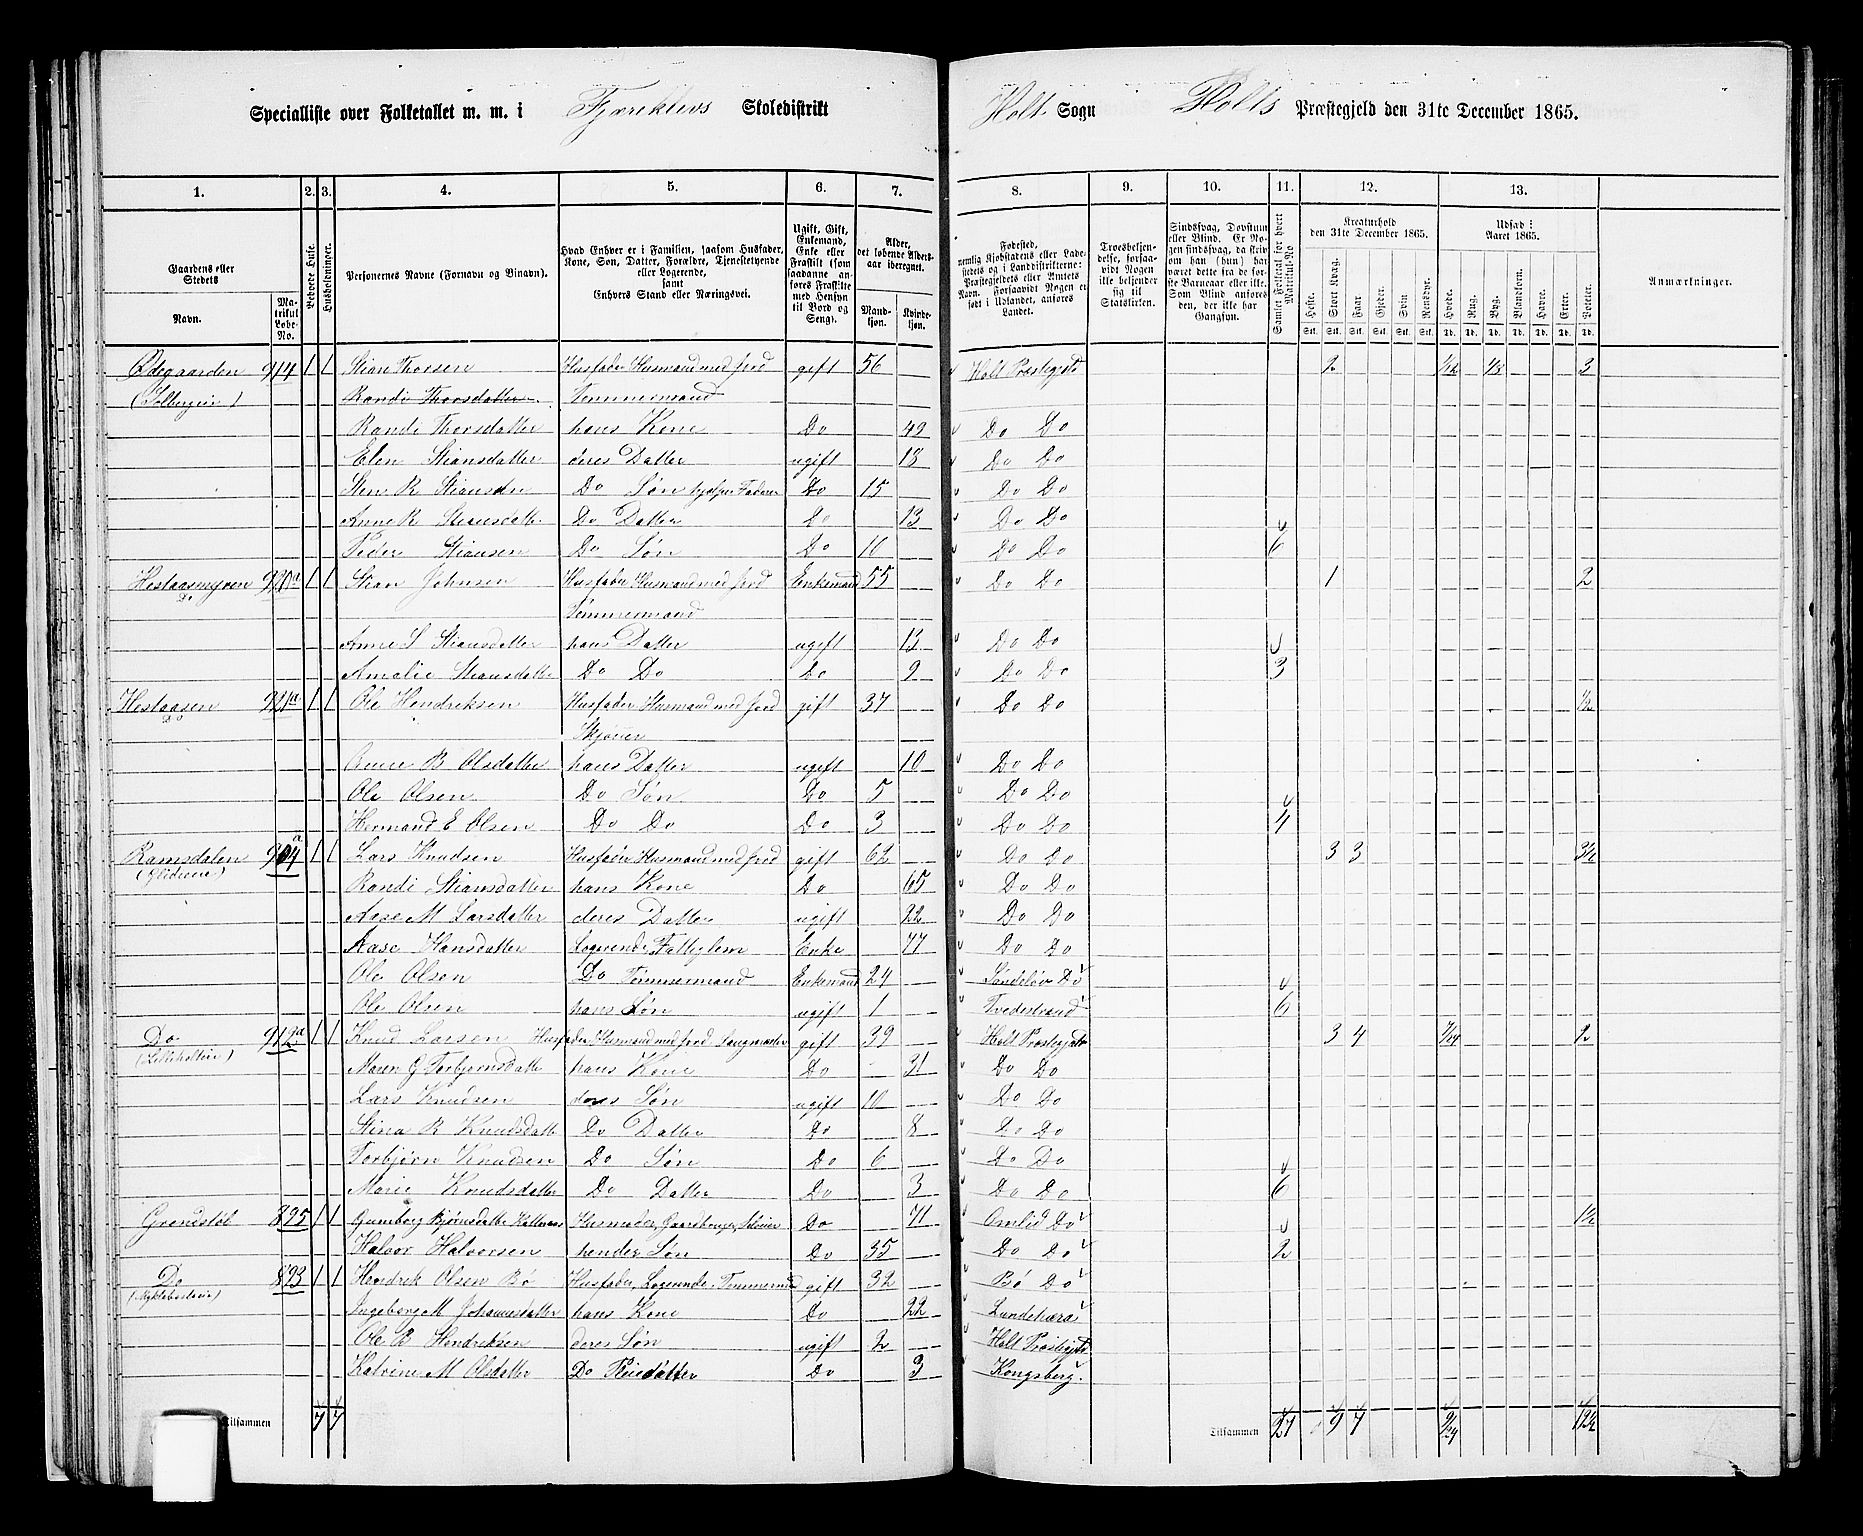 Specialliste over Folketallet m. m. i Fjæreklevs Skoledistrikt Holt Sogn Holts Præstegjeld den 31te December 1865.
1. 2. 3. 4. 5. 6. 7. 8. 9. 10. 11. 12. 13.
Gaardens eller Stedets Navn. Matrikul Løbe-No. Beboede Huse. Husholdninger. Personernes Navne (Fornavn og Binavn). Hvad Enhver er i Familien, saasom Husfader, Kone, Søn, Datter, Forældre, Tjenestetyende eller Logerende, samt Enhvers Stand eller Næringsvei. Ugift, Gift, Enkemand, Enke eller Fraskilt (som saadanne anføres Fraskilte med Hensyn til Bord og Seng). Alder, det løbende Alders-aar iberegnet. Mand-kjøn. Kvinde-kjøn.
Fødested, nemlig Kjøbstadens eller Ladestedets og i Landdistrikterne: Præstegjeldets eller Amtets Navn. Forsaavidt Nogen er født i Udlandet, anføres Landet. Troesbekjendelse, forsaavidt Nogen ikke bekjender sig til Statskirken. Sindssvag, Døvstum eller Blind. Er Nogen sindssvag, da skrives om han (hun) har været dette fra de første Barneaar eller ikke. Som Blind anføres den, der ikke har Gangsyn. Samlet Folketal for hvert Matrikul-No Kreaturhold den 31te December 1865. Heste. Stort Kvæg. Faar. Gjeder. Svin Rensdyr. Udsæd i Aaret 1865. Hvede. Rug. Byg. Blandkorn. Havre. Erter. Poteter. Anmærkninger.
Stk. Stk. Stk. Stk. Stk. Stk. Td. Td. Td. Td. Td. Td. Td.
Ødegaarden 914 1 1 Stian Thorsen Husfader Husmand med Jord gift 56 Holt Præstegjeld 2 1/12 1/8 3
(Solbergeie) Randi Thorsdatter Tømmermand
Randi Thorsdatter hans Kone Do 49 Do Do
Elen Stiansdatter deres Datter ugift 18 Do Do
Sten R Stiansen Do Søn hjelper Faderen Do 15 Do Do
Anne R Stiansdatter Do Datter Do 13 Do Do
Peder Stiansen Do Søn Do 10 Do Do 6
Hestaasmyren 920a 1 1 Stian Johnsen Husfader Husmand med Jord Enkemand 55 Do Do 1 2
Do Tømmermand
Anne S Stiansdatter hans Datter ugift 13 Do Do
Amalie Stiansdatter Do Do Do 9 Do Do 3
Hestaasen 921a 1 1 Ole Hendriksen Husfader Husmand med Jord gift 37 Do Do 1/2
Do
Anne B Olsdatter hans Datter ugift 10 Do Do
Ole Olsen Do Søn Do 5 Do Do
Hermand E Olsen Do Do Do 3 Do Do 4
Ramsdalen 904a 1 1 Lars Knudsen Husfader Husmand med Jord gift 62 Do Do 3 3 3 1/2
Randi Stiansdatter hans Kone Do 65 Do Do
Aase M Larsdatter deres Datter ugift 22 Do Do
Aase Hansdatter Logerende, Fattiglem Enke 77 Do Do
Ole Olsen Do Tømmermand Enkemand 24 Søndeløv Do
Ole Olsen hans Søn ugift 1 Tvedestrand 6
Do 912a 1 1 Knud Larsen Husfader, Husmand med Jord Saugmester gift 39 Holt Præstegjeld 3 4 1/24 2
Maren G Torbjørnsdatter hans Kone Do 31 Do Do
Lars Knudsen deres Søn ugift 10 Do Do
Stina R Knudsdatter Do Datter Do 8 Do Do
Torbjørn Knudsen Do Søn Do 6 Do Do
Marie Knudsdatter Do Datter Do 3 Do Do 6
Grendstøl 895 1 1 Gunborg Bjørnsdatter Husmoder, Gaardbruger, Selveier Do 71 Omlid Do 1 1/2
Halvor Halvorsen hendes Søn Do 35 Do Do 2
Do 893 1 1 Hendrik Olsen Bø Husfader, Logerende, Tømmermand gift 32 Bø Do
Ingeborg M Johannesdatter hans Kone Do 22 Lundehæra
Ole R Hendriksen deres Søn ugift 2 Holt Præstegjeld
Katrine M Olsdatter Do Pleiedatter Do 3 Kongsberg.
Tilsammen 7 7 Tilsammen 27 9 7 12 1/2